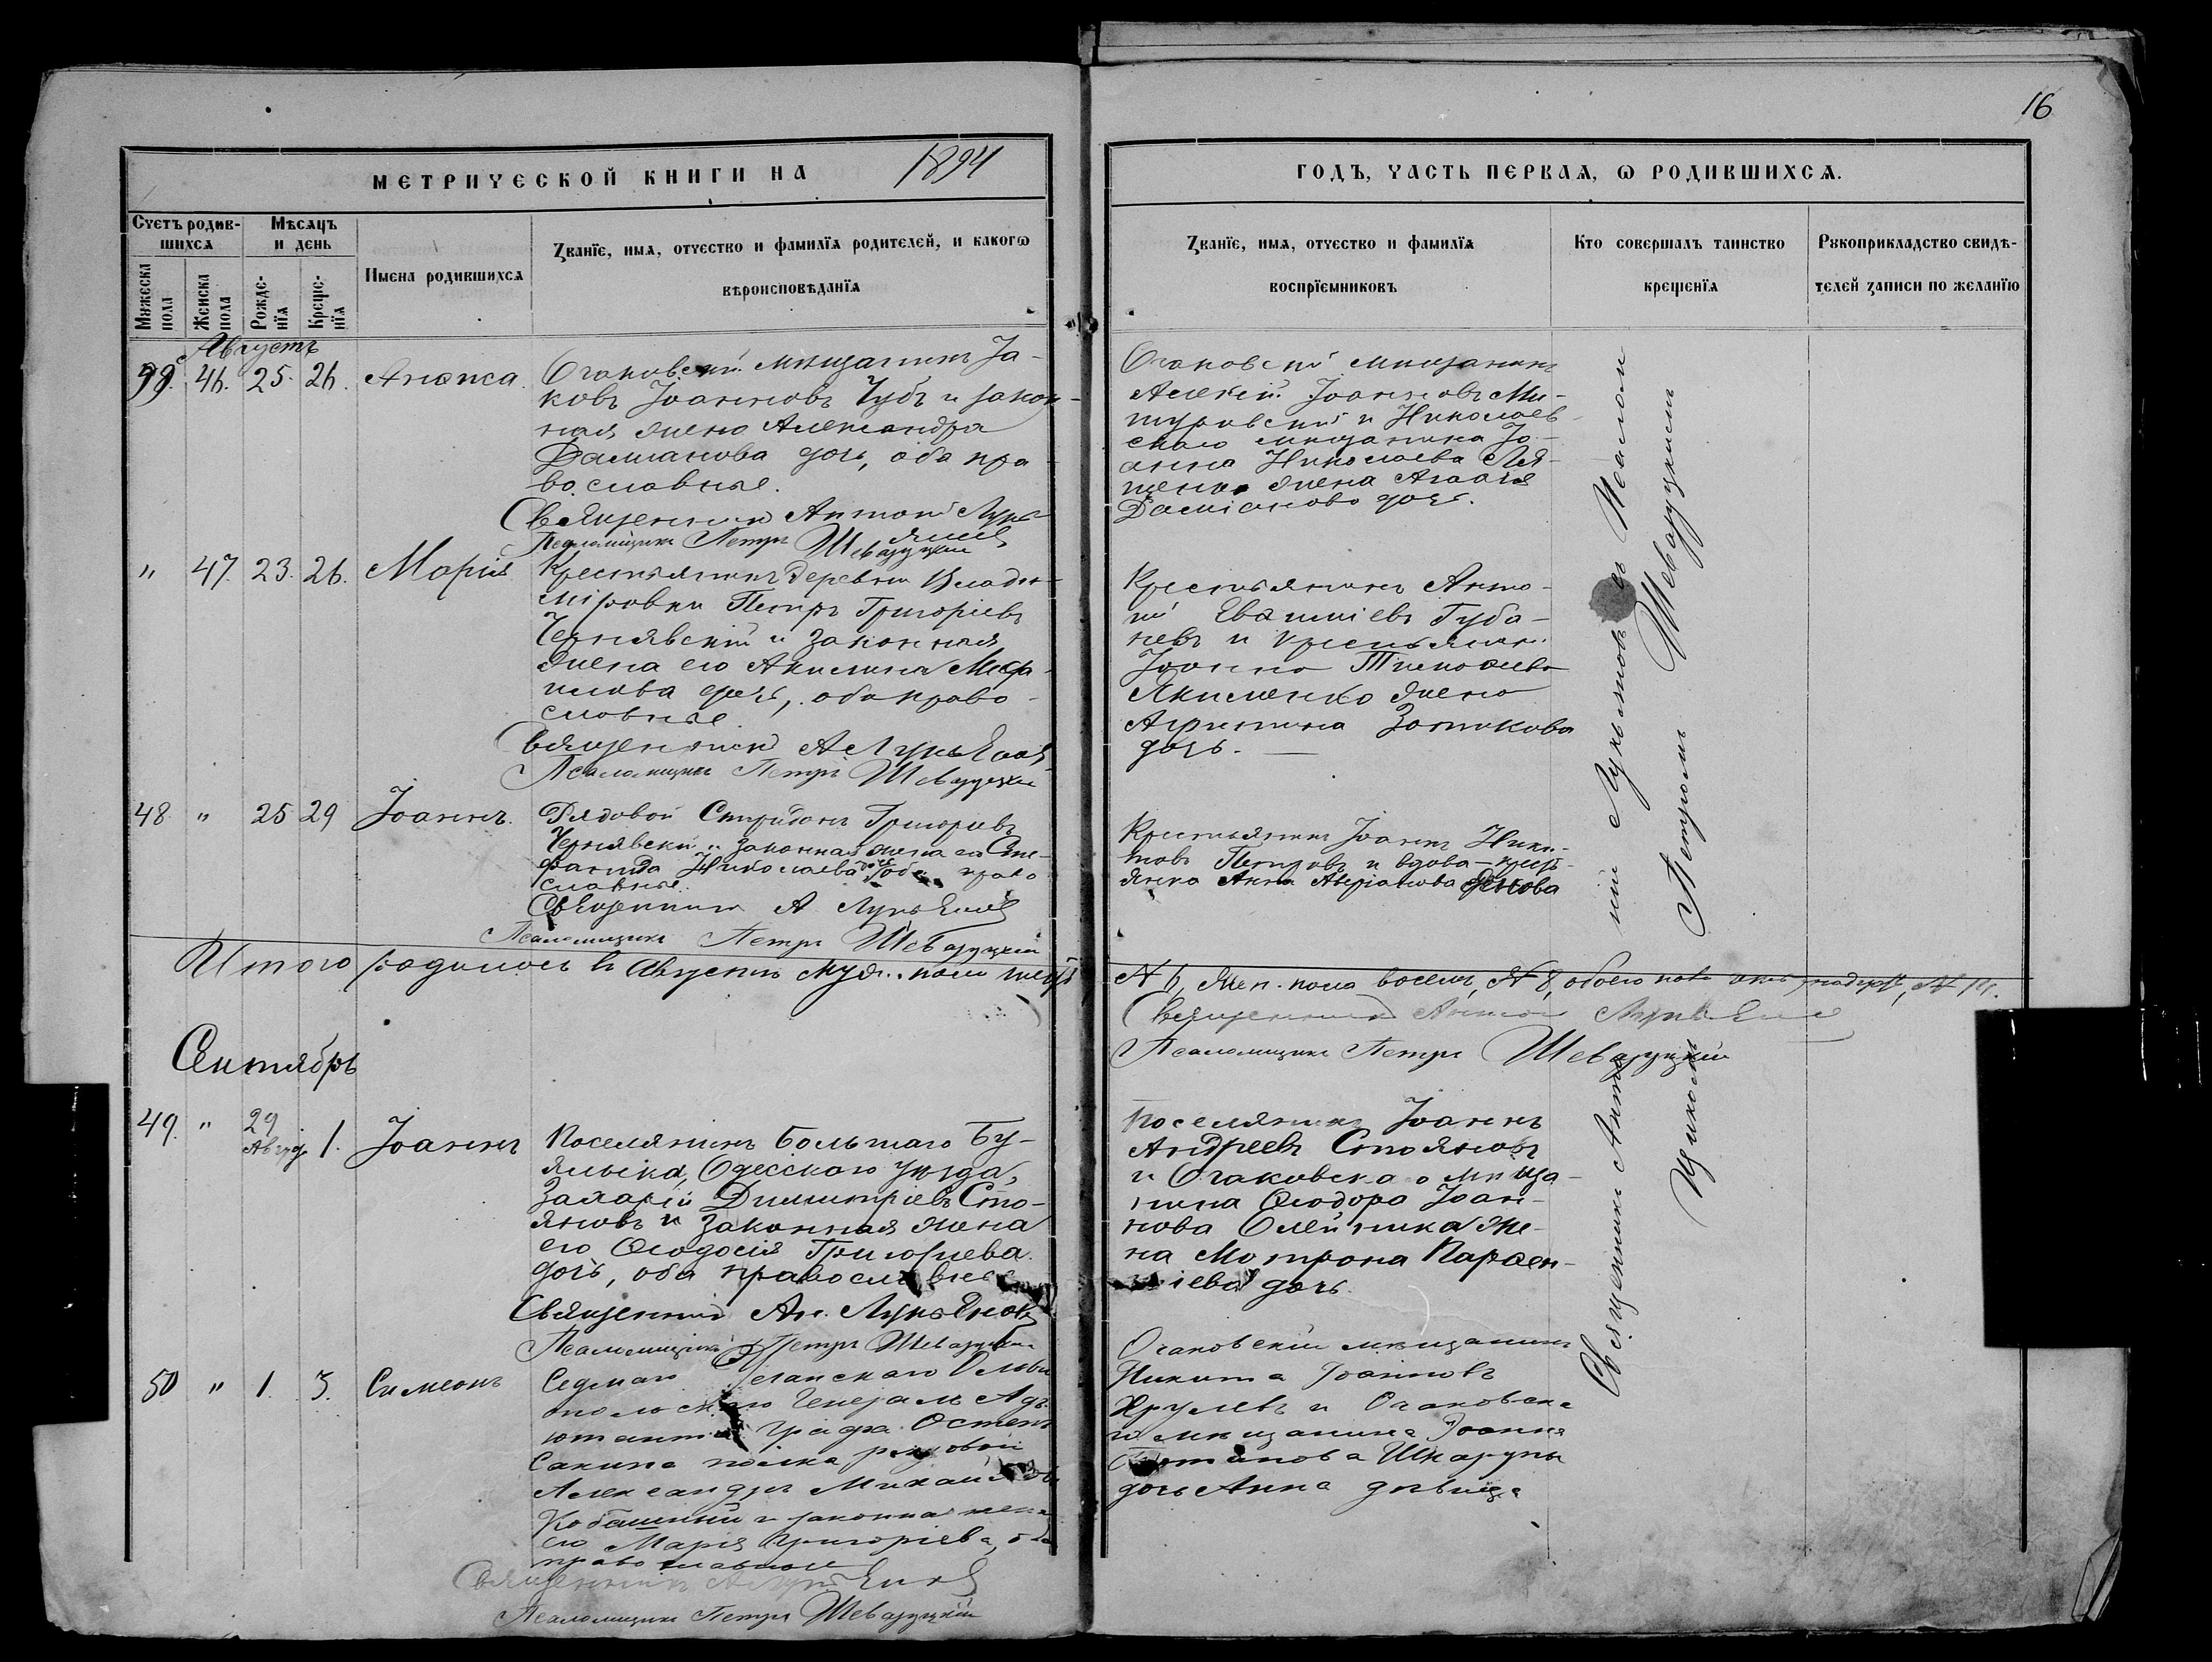 16
МЕТРИЧЕСКОЙ КНИГИ НА 1894
ГОДЪ, ЧАСТЬ ПЕРВАЯ, Ѡ РОДИВШИХСЯ.
Счетъ родив-
шихся
Мѣсяцъ
и день
Мужеска
пола
Женска
пола
Рожде-
нїя
Креще-
нїя
Имена родившихся
Званїе, имя, отчество и фамилїя родителей, и какогѡ
вѣроисповѣданїя
Званїе, имя, отчество и фамилїя
воспрїемниковъ
Кто совершалъ таинство
крещенїя
Рꙋкоприкладство свидѣ-
телей записи по желанїю
Августъ
46. 25. 26.
Очаковскій мѣщанинъ Іа-
ковъ Іоанновъ Чубъ и закон-
ная жена Александра
Даміанова дочь, оба пра-
вославные.
Священникъ Антоній
Псаломщикъ Петръ Шеваруцкій
Очаковскій мѣщанинъ
Алексій Іоанновъ Ми-
туровскій и Николаев-
скаго мѣщанина Іо-
анна Николаева
жена
Даміанова дочь.
" 47. 23. 26. Марія
Крестьянинъ деревни Влади-
міровки Петръ Григоріевъ
Чернявскій и законная
жена его Акилина
дочь, оба право-
славные.
Священникъ А Лукьянов
Псаломщикъ Петръ Шеваруцкій
Крестьянинъ Анто-
ній Евѳиміевъ Губа-
невъ и крестьянин.
Іоанна Тимоѳеева
Якименко жена
Агрипина
дочь.
48 " 25 29 Іоаннъ.
Рядовой Спиридонъ Григоріевъ
Чернявскій и законная жена его Сте-
фанида Николаева дочь, оба право-
славные.
Священникъ А Лукьянов
Псаломщикъ Петръ Шеваруцкій
Крестьянинъ Іоаннъ Ники-
товъ Петровъ и вдова крест-
янка Анна
Итого родилось въ Августѣ муж. пола шесть
N 6, жен. пола восемь, N 8, обоего пола четырнадцать, N 14.
Священникъ Антоній Лукьянов
Псаломщикъ Петръ Шеваруцкій
Сентябрь
49. " 29 Август 1. Іоаннъ
Поселянинъ Большаго Бу-
ялыка, Одесскаго уѣзда,
Захарій Димитріевъ Сто-
яновъ и законная жена
его Ѳеодосія Григоріева
дочь, оба православные
Священникъ Ан. Лукьянов
Псаломщикъ Петръ Шеваруцкій
Поселянинъ Іоаннъ
Андреевъ Стояновъ
и Очаковскаго мѣща-
нина Ѳеодора Іоан-
нова Олейника же-
на Мотрона Парѳен-
іева дочь.
50 " 1. 3. Симеонъ
Седмаго Уланскаго Ольви
опольскаго Генералъ Адъ
ютанта Графа Остенъ
Сакина полка рядовой
Александръ Михайловъ
и законная жена
его Марія Григоріева, оба
православные
Священникъ А Лукьянов
Псаломщикъ Петръ Шеваруцкій
Очаковскій мѣщанинъ
Никита Іоанновъ
Хрулевъ и Очаковска
го мѣщанина Іоанна
Шкарупы
дочь Анна дѣвица
Священникъ Антоній Лукьяновъ съ Псалом
щикомъ Петромъ Шеваруцкимъ